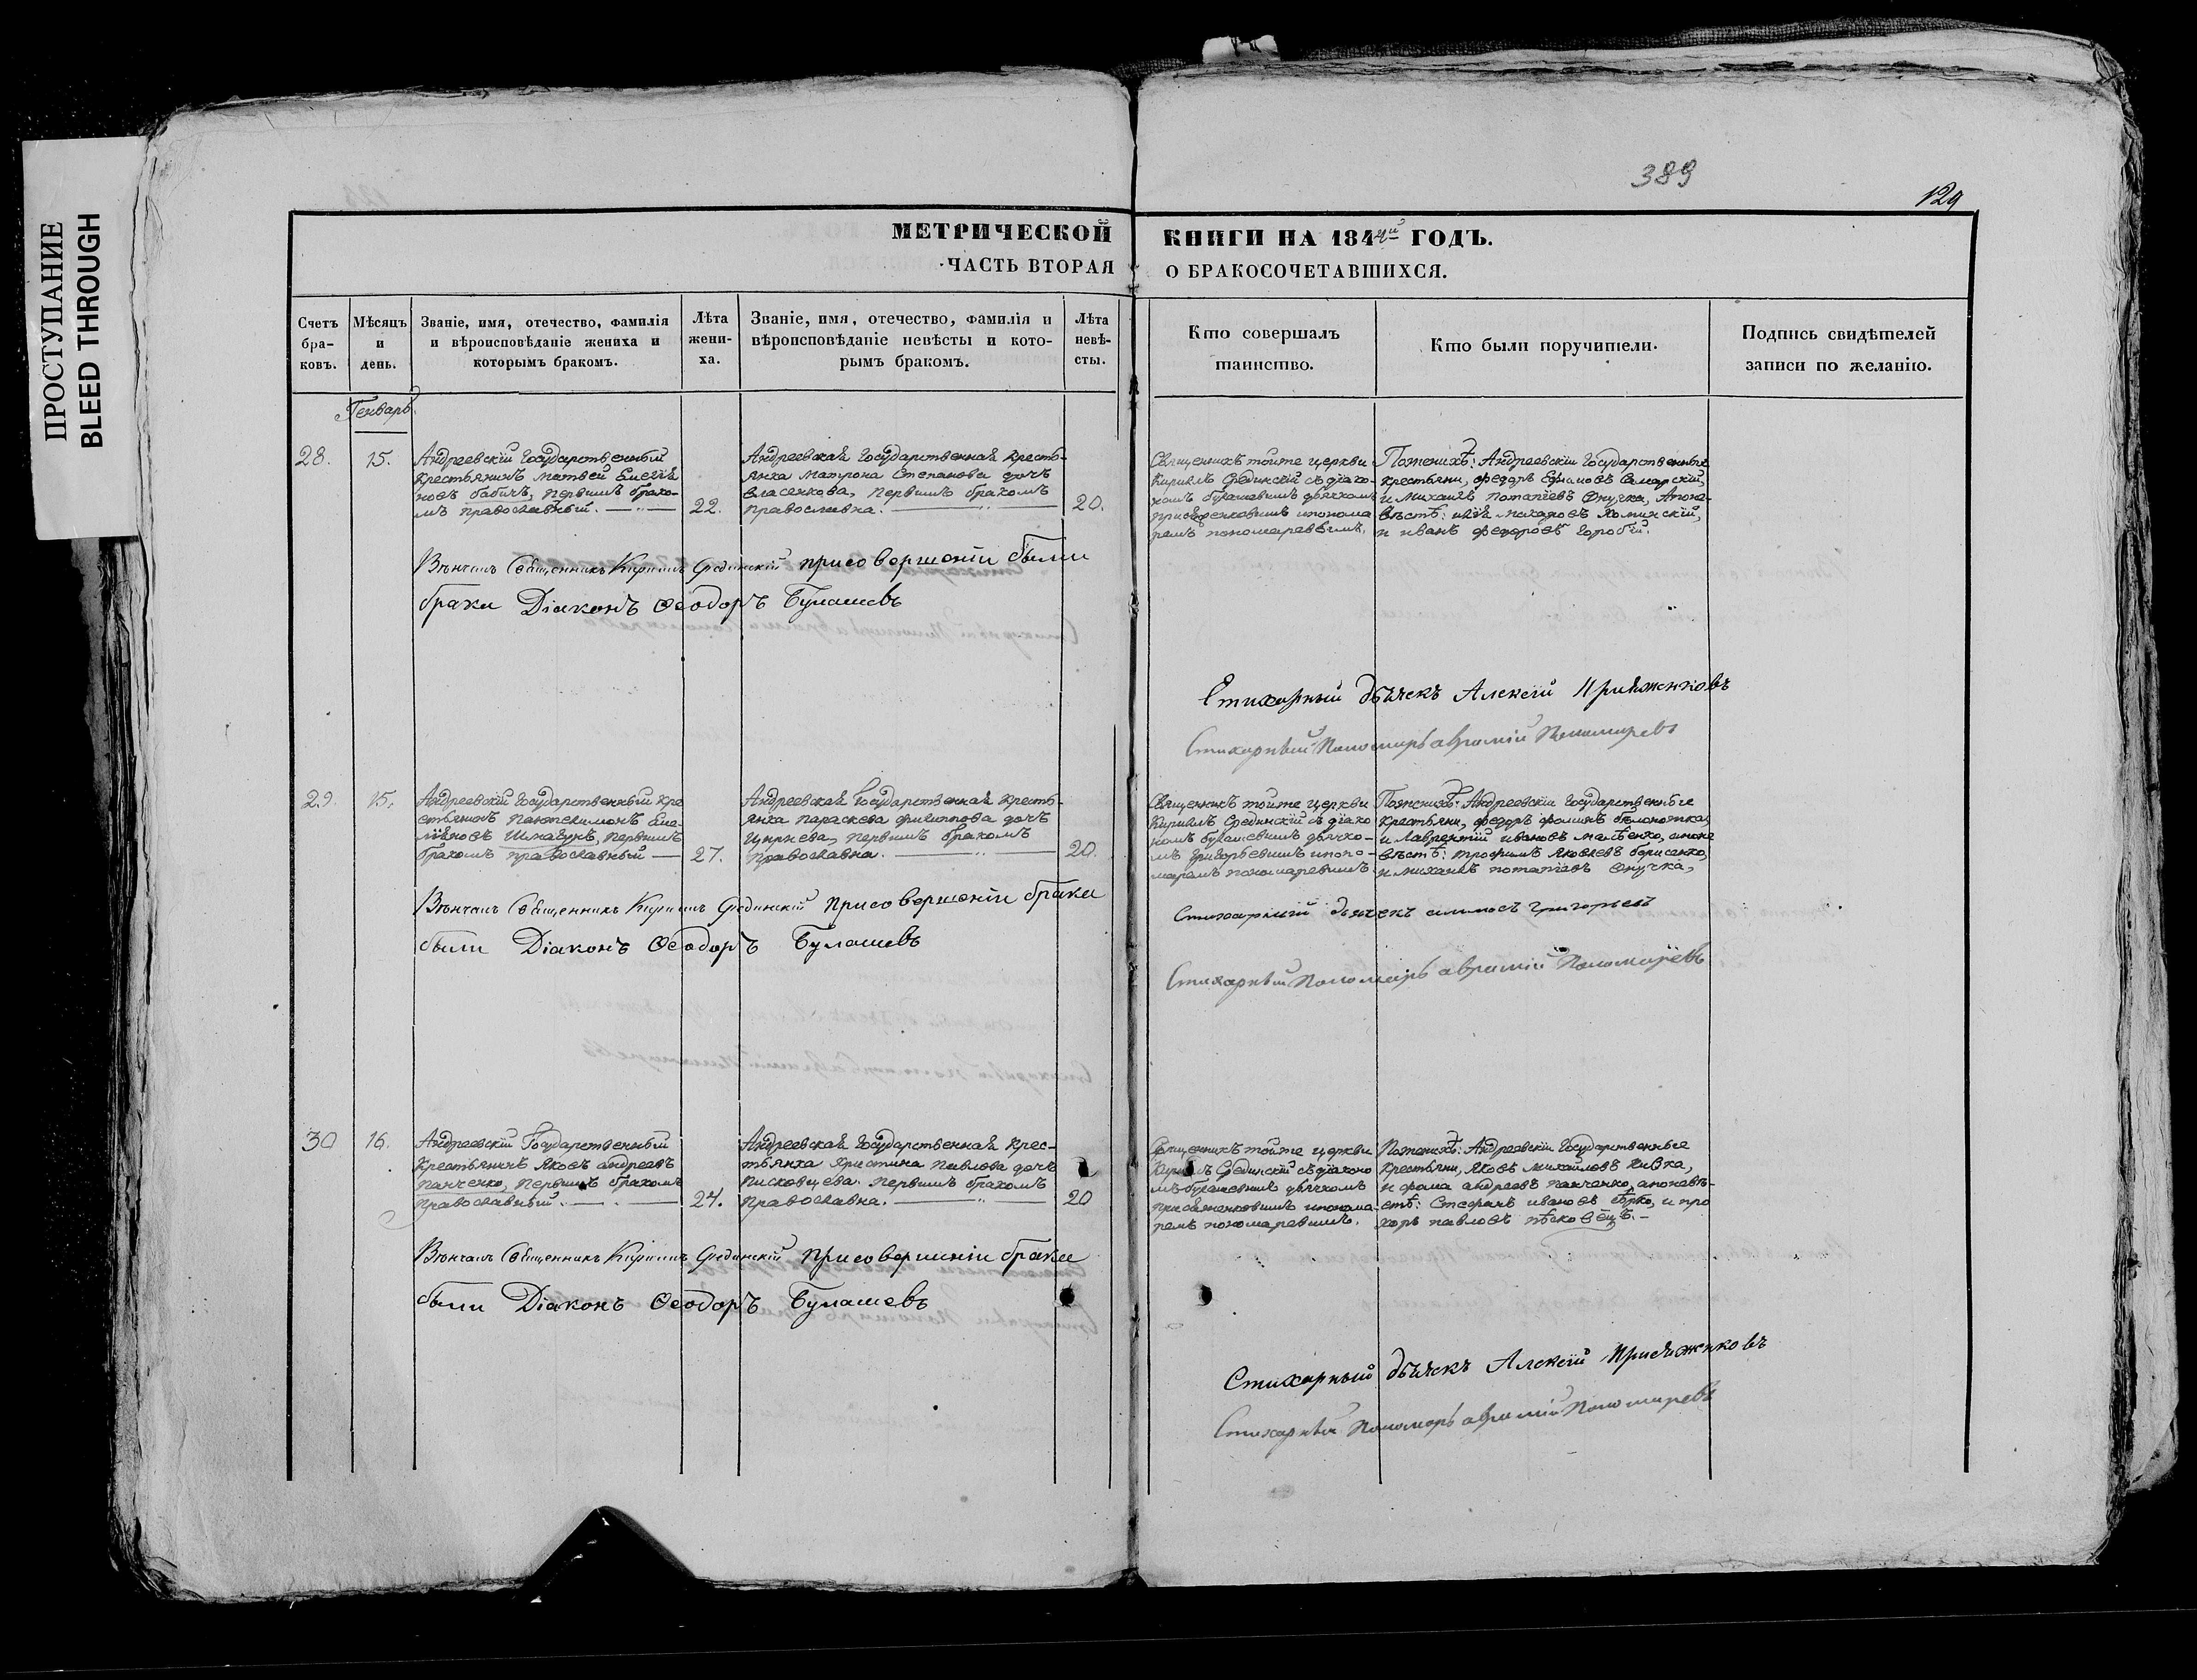 ПРОСТУПАНИЕ
BLEED THROUGH
389
129
МЕТРИЧЕСКОЙ КНИГИ НА 1844й ГОДЪ.
ЧАСТЬ ВТОРАЯ О БРАКОСОЧЕТАВШИХСЯ.
Счетъ браковъ.
Мѣсяцъ и день.
Званіе, имя, отечество, фамилія
и вѣроисповѣданіе жениха и
которымъ бракомъ.
Лѣта
жени-
ха.
Званіе, имя, отечество, фамилія и
вѣроисповѣданіе невѣсты и кото-
рымъ бракомъ.
Лѣта
невѣ-
сты.
Кто совершалъ
таинство.
Кто были поручители.
Подпись свидѣтелей
записи по желанію.
Генварь
28.
15.
Андреевскій Государственный
крестьянинъ Матвей
новъ бабичъ, первымъ брако-
мъ православный.
22.
Андреевская Государственная кресть-
янка Матрона Степанова дочь
власенкова, первымъ бракомъ
православна.
20.
Священникъ тойже церкви
Кирилъ Срединскій съ діако-
номъ булашевымъ дьячкомъ
присяженковымъ ипонома
ремъ пономаревымъ.
Поженихѣ: Андреевскіи Государственные
крестьяни, федоръ Самарскій,
и Михаилъ потапіевъ Онучка, Апоне-
вѣстѣ:
и иванъ федоровъ горобій.
Вѣнчалъ Священникъ Кирилъ Срединскій присовершеніи были
брака Діаконъ Ѳеодоръ Булашевъ
Стихарный дьячекъ Алексій Присяженковъ
Стихарный Пономарь аврамій Пономаревъ
29.
15.
Андреевскій Государственный кре
стьянинъ Пантелимонъ Еме-
ліановъ Шматунъ, первымъ
бракомъ православный
27.
Андреевская Государственная кресть-
янка параскева филиппова дочь
первымъ бракомъ
православна.
20.
Священникъ тойже церкви
Кирилъ Срединскій съ діако
номъ булашевымъ дьячко-
мъ григорьевымъ ипоно-
маремъ пономаревымъ
Поженихѣ: Андреевскіи Государственные
крестьяни, федоръ фоминъ бѣлоножка,
и Лаврентій ивановъ апоне
вѣстѣ: трофимъ Яковлевъ борисенко,
и михаилъ потапіевъ Онучка,
Вѣнчалъ Священникъ Кирилъ Срединскій присовершеніи брака
были Діаконъ Ѳеодоръ Булашевъ
Стихарный дьячекъ григорьевъ
Стихарный Пономарь аврамій Пономаревъ
30
16.
Андреевскій Государственный
Крестьянинъ Яковъ андреевъ
панченко, первымъ бракомъ
православный.
24.
Андреевская Государственная крес-
тьянка Христина Павлова дочь
Писковцева. первымъ бракомъ
православна.
20
Священникъ тойже церкви
Кирилъ Срединскій съ діаконо
мъ булашевымъ дьячкомъ
присяженковымъ ипонома-
ремъ пономаревымъ.
Поженихѣ: Андреевскіи Государственные
Крестьяни, Яковъ михайловъ
и фома андреевъ панченко, апоневѣ-
стѣ: Стефанъ ивановъ и про
хоръ павловъ пѣсковецъ.
Вѣнчалъ Священникъ Кирилъ Срединскій присовершеніи брака
были Діаконъ Ѳеодоръ Булашевъ
Стихарный дьячекъ Алексій Присяженковъ
Стихарный Пономарь аврамій Пономаревъ